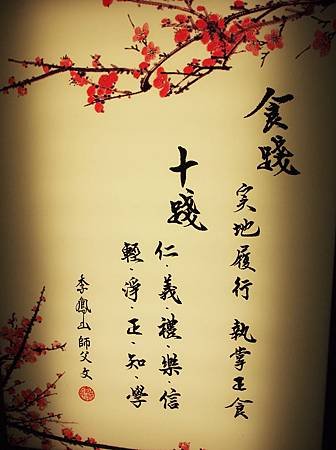 食踐
実地履行 執掌正食
十踐
仁·義·禮·樂·信
輕·淨·正·知·學
李鳳山師父文